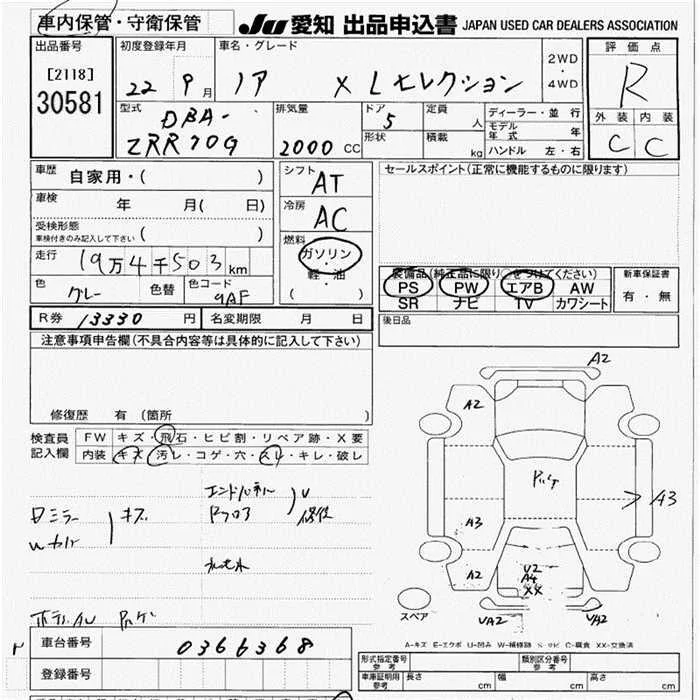 車内保管・守衛保管
JU 愛知 出品申込書 JAPAN USED CAR DEALERS ASSOCIATION
出品番号
[2118]
30581
初度登録年月
22 9月
車名・グレード
ノア X Lセレクション
2WD
・
4WD
評価点
R
外装 内装
C C
型式
DBA-
ZRR70G
排気量
2000 CC
ドア
5
形状
定員
人
積載
kg
ディーラー・並行
モデル年式 年
ハンドル 左・右
車歴
自家用・( )
車検
年 月( 日)
受検形態
車検付きのみ記入して下さい ( )
走行
19万4千503km
色
グレー
色替
色コード
9AF
シフト
AT
冷房
AC
燃料
ガソリン
・
軽・油
・
( )
セールスポイント(正常に機能するものに限ります)
装備品(純正品に限り○をつけてください)
PS PW エアB AW
SR ナビ TV カワシート
新車保証書
有・無
R券 13330 円
名変期限 月 日
後日品
注意事項申告欄(不具合内容等は具体的に記入して下さい)
修復歴 有 (箇所
検査員
記入欄
FW キズ・飛石・ヒビ割・リペア跡・X要
内装 キズ・汚レ・コゲ・穴・スレ・キレ・破レ
エンドパネル
Rフロア
修復
キズ
A2
A2
A3
A3
A2
V2
A4
XX
VA2
VA2
スペア
A-キズ E-エクボ U-凹み W-補修跡 S-サビ C-腐食 XX-交換済
車台番号
0366368
登録番号
形式指定番号
参考
類別区分番号
参考
車庫証明用
参考
長さ cm
幅 cm
高さ cm